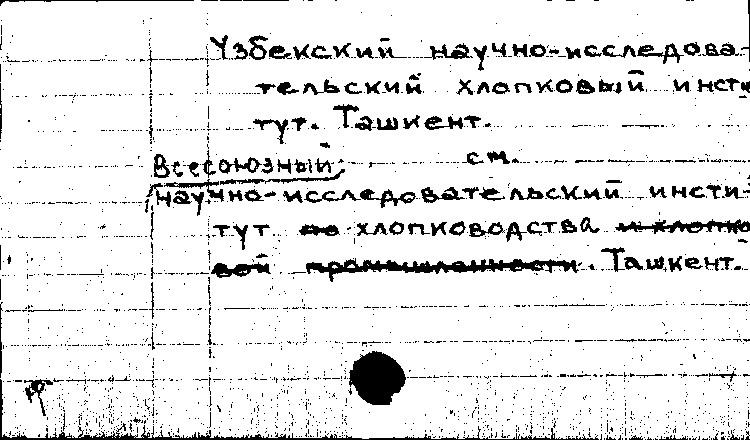 Узбекский научно-исследова-
тельский хлопковый инсти
тут. Ташкент.
см.
Всесоюзный
научно-исследовательский инсти-
тут по хлопководства и хлопко
вой промышленности. Ташкент.